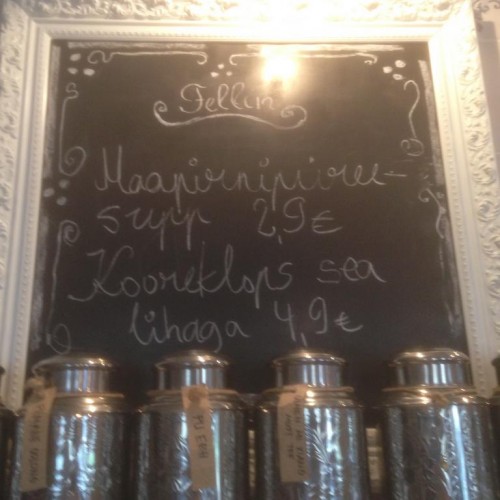 Fellin
Maapirnipüree-
supp 2,9€
Kooreklops sea
lihaga 4,9€
PU ERH